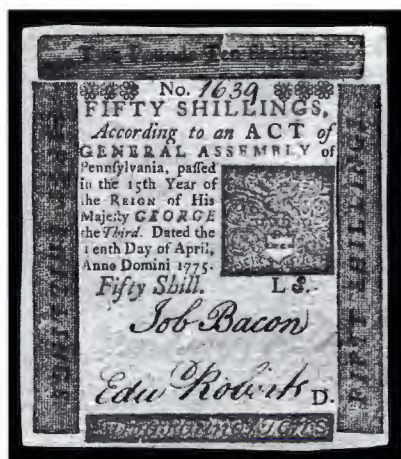 Two Pounds Ten Shillings
No. 1639
FIFTY SHILLINGS,
According to an ACT of
GENERAL ASSEMBLY of
Pennſylvania, paſſed
in the 15th Year of
the REIGN of His
Majeſty GEORGE
the Third. Dated the
Tenth Day of April,
Anno Domini 1775.
Fifty Shill. L S.
Job Bacon
Edw Roberts D.
FIFTY SHILLINGS